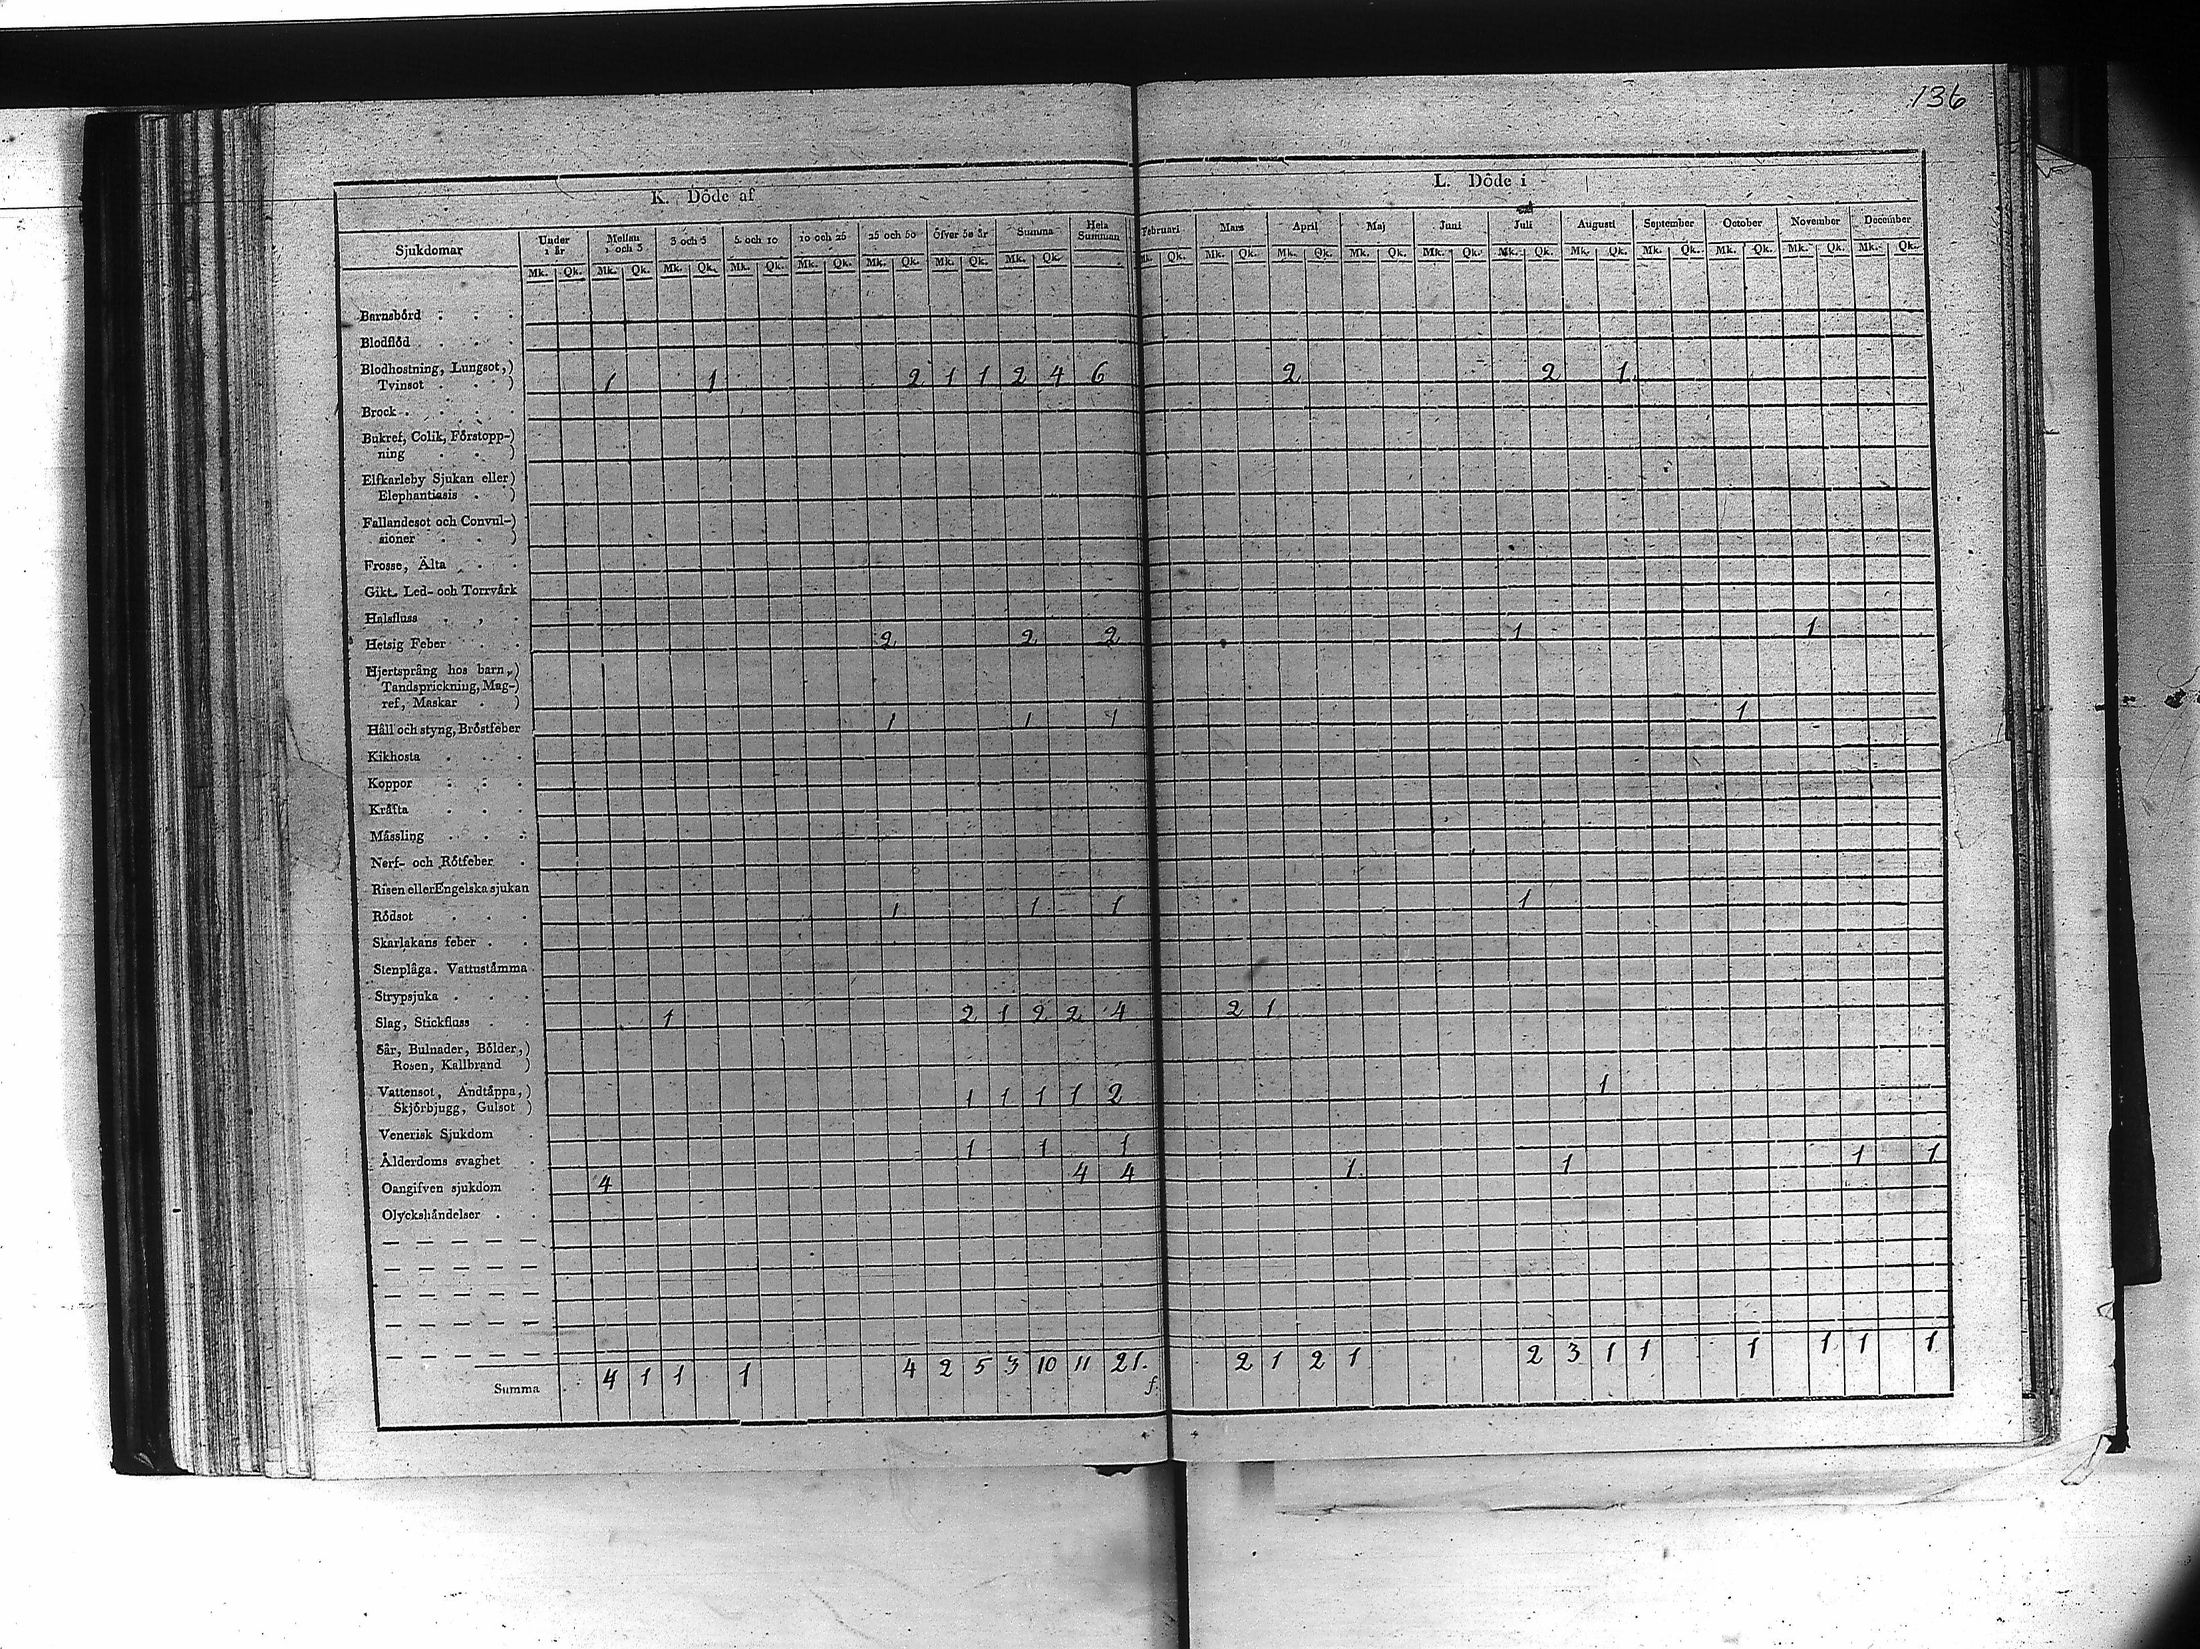 136
K. Döde af
L. Döde i
Sjukdomar Under 1 år Mellan 1 och 3 3 och 5 5 och 10 10 och 25 25 och 50 Öfver 50 år Summa Hela Summan Februari Mars April Maj Juni Juli Augusti September October November December
Mk. Qk. Mk. Qk. Mk. Qk. Mk. Qk. Mk. Qk. Mk. Qk. Mk. Qk. Mk. Qk. Mk. Qk. Mk. Qk. Mk. Qk. Mk. Qk. Mk. Qk. Mk. Qk. Mk. Qk. Mk. Qk. Mk. Qk. Mk. Qk. Mk. Qk.
Barnsbörd . . .
Blodflöd . . .
Blodhostning, Lungsot,)
Tvinsot . . . ) 1 1 2 1 1 2 4 6 2 2 1
Brock . . . .
Bukref, Colik, Förstopp-)
ning . . )
Elfkarleby Sjukan eller)
Elephantiasis . )
Fallandesot och Convul-)
sioner . . )
Frosse, Älta . .
Gikt. Led- och Torrvårk
Halsfluss . , .
Hetsig Feber . . 2 2 2 1 1
Hjertsprång hos barn,)
Tandsprickning, Mag-)
ref, Maskar . )
Håll och styng, Bröstfeber 1 1 1 1
Kikhosta . . .
Koppor . . .
Kräfta . . .
Mässling . . .
Nerf- och Rötfeber .
Risen eller Engelska sjukan
Rödsot . . . 1 1 1 1
Skarlakans feber . .
Stenplåga. Vattustämma .
Strypsjuka . . .
Slag, Stickfluss . . 1 2 1 2 2 4 2 1
Sår, Bulnader, Bölder,)
Rosen, Kallbrand )
Vattensot, Andtäppa,)
Skjörbjugg, Gulsot ) 1 1 1 1 2 1
Venerisk Sjukdom .
Ålderdoms svaghet . 1 1 1
Oangifven sjukdom . 4 4 4 1 1 1 1
Olyckshändelser . .
Summa 4 1 1 1 4 2 5 3 10 11 21. 2 1 2 1 2 3 1 1 1 1 1 1
f